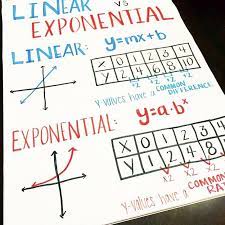 LINEAR vs
EXPONENTIAL
LINEAR: y=mx+b
X 0 1 2 3 4
Y 2 4 6 8 10
+2 +2 +2 +2
y-values have a COMMON
DIFFERENCE
EXPONENTIAL: y=a·bˣ
X 0 1 3 4
Y 1 2 4 8
x2 x2 x2
y-values have a COMMON